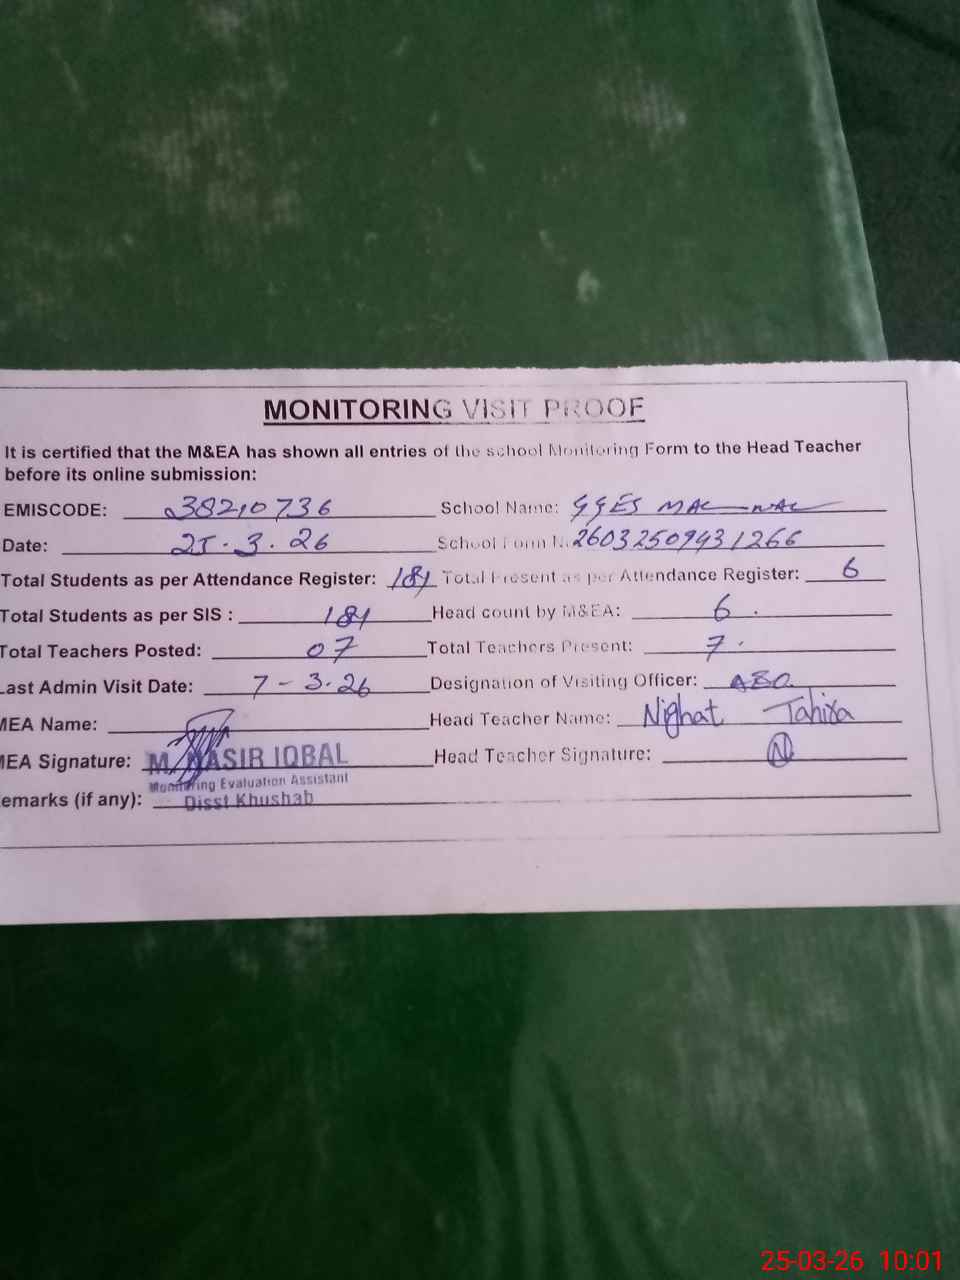 MONITORING VISIT PROOF
It is certified that the M&EA has shown all entries of the school Monitoring Form to the Head Teacher
before its online submission:
EMISCODE: 38210736 School Name: GGES MAL WAL
Date: 25.3.26 School Form N. 26032509431266
Total Students as per Attendance Register: 181 Total Present as per Attendance Register: 6
Total Students as per SIS : 181 Head count by M&EA: 6.
Total Teachers Posted: 07 Total Teachers Present: 7.
Last Admin Visit Date: 7-3.26 Designation of Visiting Officer:
MEA Name: Head Teacher Name: Nighat Tahira
MEA Signature: M. NASIR IQBAL Head Teacher Signature: N
Monitoring Evaluation Assistant
emarks (if any): Disst Khushab
25-03-26 10:01